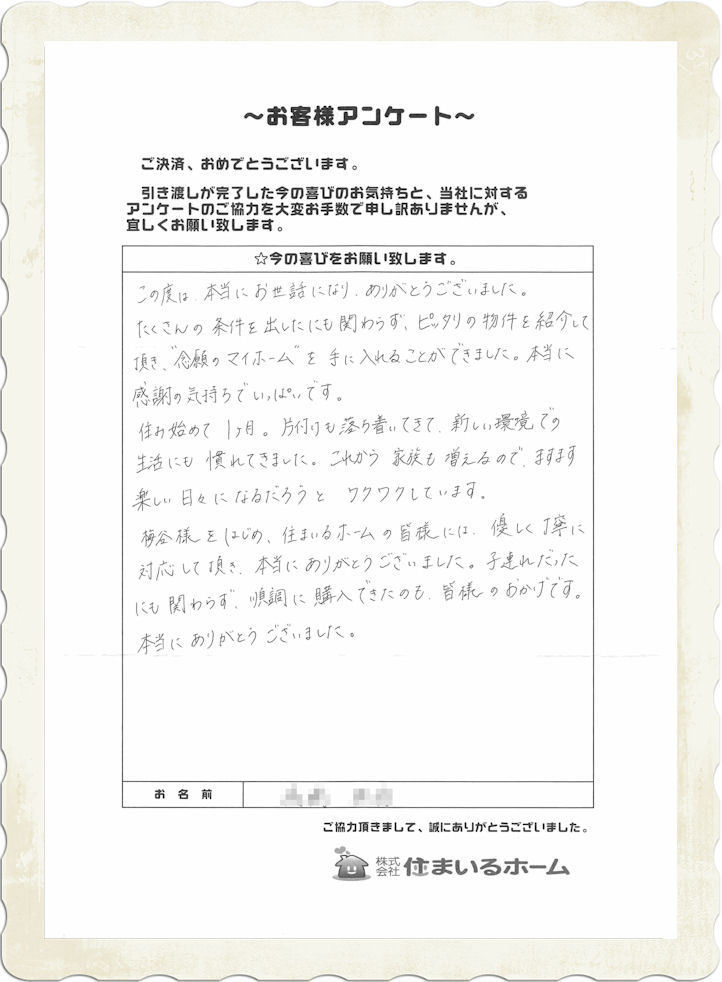 ～お客様アンケート～
ご決済、おめでとうございます。
引き渡しが完了した今の喜びのお気持ちと、当社に対する
アンケートのご協力を大変お手数で申し訳ありませんが、
宜しくお願い致します。
☆今の喜びをお願い致します。
この度は、本当にお世話になり、ありがとうございました。
たくさんの条件を出したにも関わらず、ピッタリの物件を紹介して
頂き、"念願のマイホーム"を手に入れることができました。本当に
感謝の気持ちでいっぱいです。
住み始めて1ヶ月。片付けも落ち着いてきて、新しい環境での
生活にも慣れてきました。これから家族も増えるので、ますます
楽しい日々になるだろうとワクワクしています。
梅谷様をはじめ、住まいるホームの皆様には、優しく丁寧に
対応して頂き、本当にありがとうございました。子連れだった
にも関わらず、順調に購入できたのも、皆様のおかげです。
本当にありがとうございました。
お名前
ご協力頂きまして、誠にありがとうございました。
株式会社 住まいるホーム